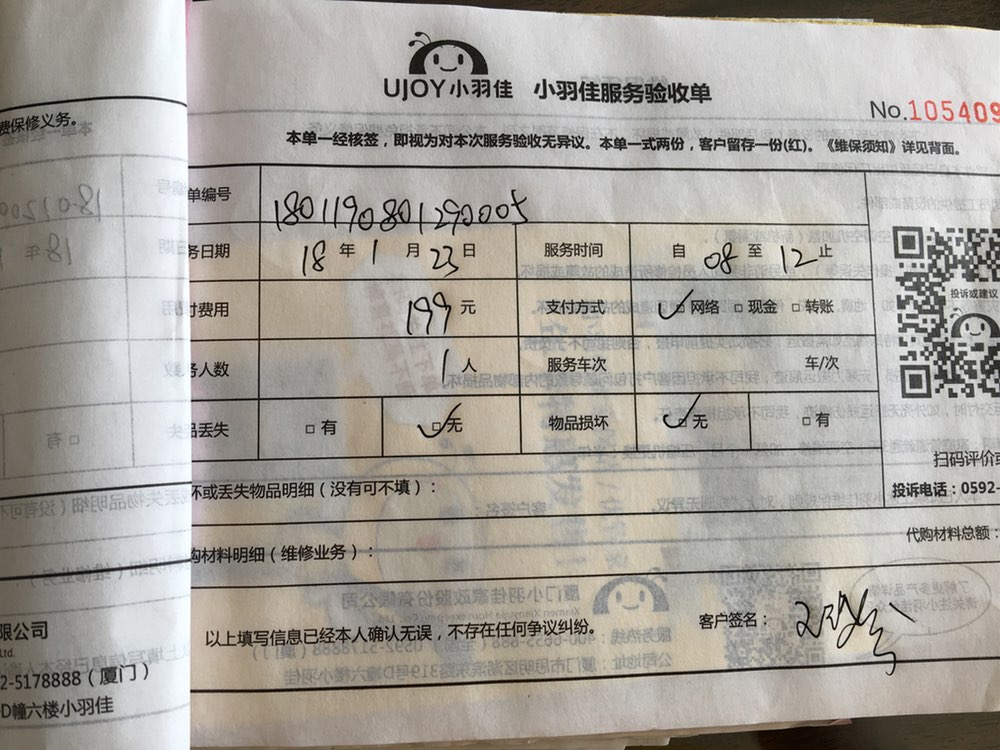 UJOY小羽佳 小羽佳服务验收单
No.105409
本单一经核签，即视为对本次服务验收无异议。本单一式两份，客户留存一份(红)。《维保须知》详见背面。
单编号 1801190801290005
务日期 18 年 1 月 23 日 服务时间 自 08 至 12 止
付费用 199 元 支付方式 网络 □ 现金 □ 转账
务人数 1 人 服务车次 车/次
品丢失 □ 有 □ 无 物品损坏 □ 无 □ 有
投诉或建议
扫码评价或
投诉电话：0592-
坏或丢失物品明细（没有可不填）：
购材料明细（维修业务）：
代购材料总额：
以上填写信息已经本人确认无误，不存在任何争议纠纷。
客户签名：
费保修义务。
限公司
Ltd.
2-5178888（厦门）
D幢六楼小羽佳